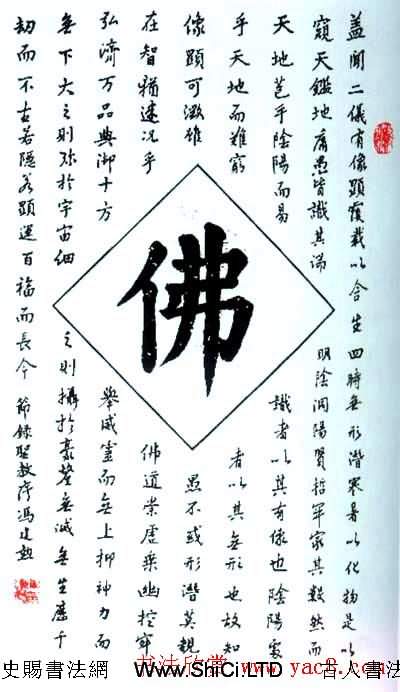 蓋聞二儀有像顯覆載以含生四時無形潛寒暑以化物是以
窺天鑑地庸愚皆識其端明陰洞陽賢哲罕窮其數然而
天地苞乎陰陽而易識者以其有像也陰陽處
乎天地而難窮者以其無形也故知
像顯可徵雖愚不或形潛莫覩
在智猶迷況乎佛道崇虛乘幽控寂
弘濟万品典御十方舉威靈而無上抑神力而
無下大之則弥於宇宙細之則攝於豪釐無滅無生歷千
劫而不古若隱若顯運百福而長今 節錄聖教序馮建
佛
史賜書法網 www.ShiCi.LTD 古人書法網
书法欣赏 www.yac8.com